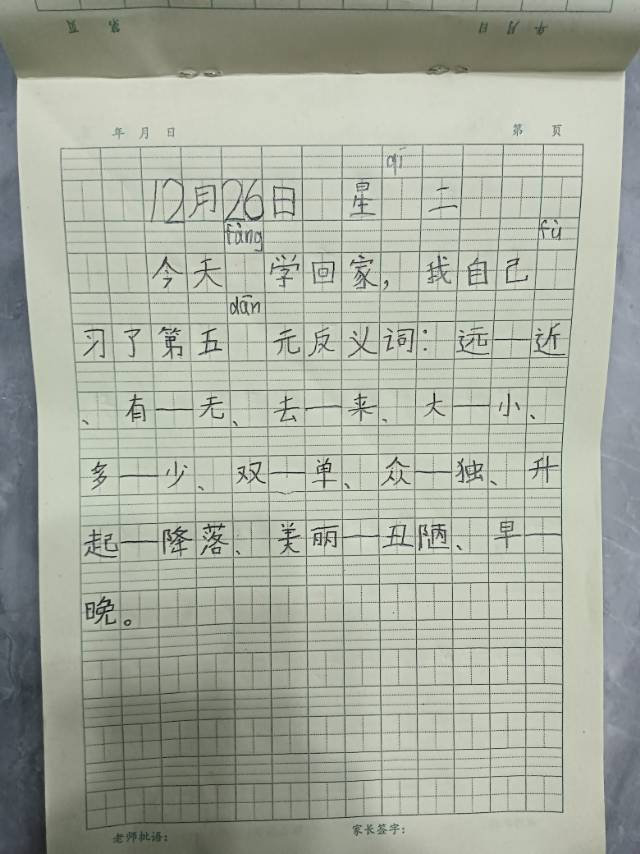 第 页 年 月 日
年 月 日 第 页
qī
12月26日 星 二
fàng fù
今天 学回家，我自己
dān
习了第五 元反义词：远—近
、有—无、去—来、大—小、
多—少、双—单、众—独、升
起—降落、美丽—丑陋、早—
晚。
老师批语： 家长签字：